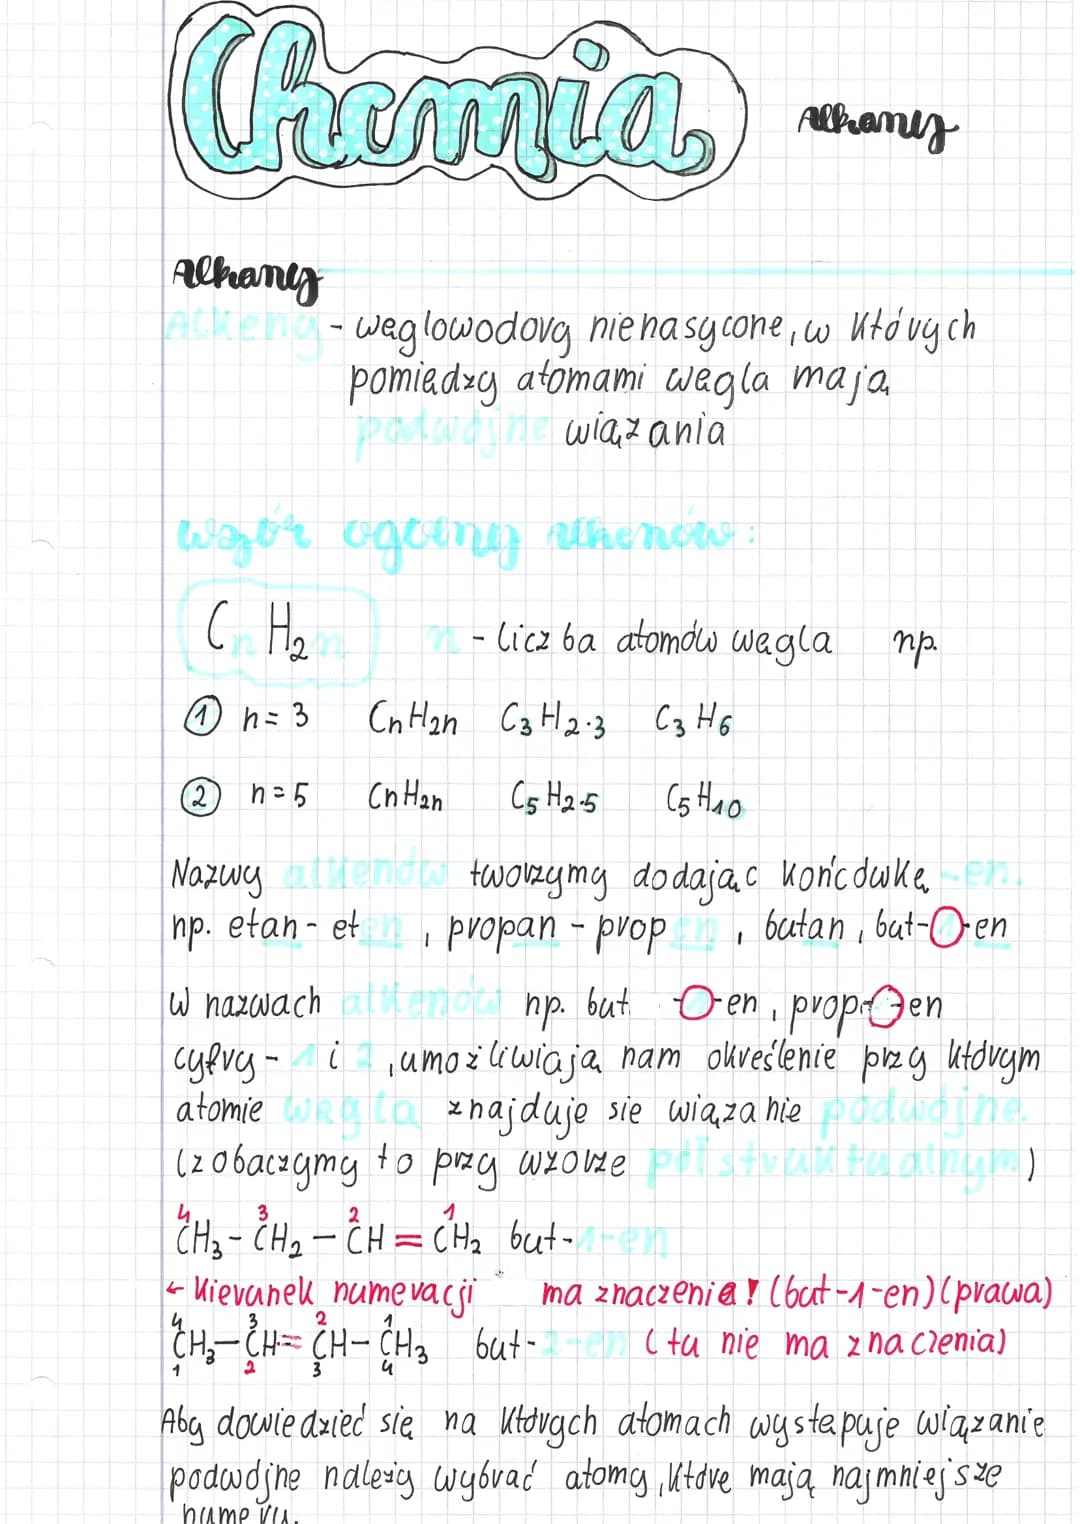 Chemia
Alkany
Alkany
Alkeny - węglowodory nienasycone, w których
pomiędzy atomami węgla mają
podwójne wiązania
wzór ogólny alkenów:
CnH2n n - liczba atomów węgla np.
1 n = 3 CnH2n C3H2·3 C3H6
2 n = 5 CnH2n C5H2·5 C5H10
Nazwy alkenów tworzymy dodając końcówkę -en.
np. etan - eten, propan - propen, butan, but-1-en
W nazwach alkenów np. but -en, prop -en
cyfry - 1 i 2, umożliwiają nam określenie przy którym
atomie węgla znajduje się wiązanie podwójne.
(zobaczymy to przy wzorze półstrukturalnym)
4 3 2 1
CH3 - CH2 - CH = CH2 but-1-en
← kierunek numeracji ma znaczenie! (but-1-en) (prawa)
4 3 2 1
CH3 - CH = CH - CH3 but-2-en (tu nie ma znaczenia)
1 2 3 4
Aby dowiedzieć się na których atomach występuje wiązanie
podwójne należy wybrać atomy, które mają najmniejsze
numery.